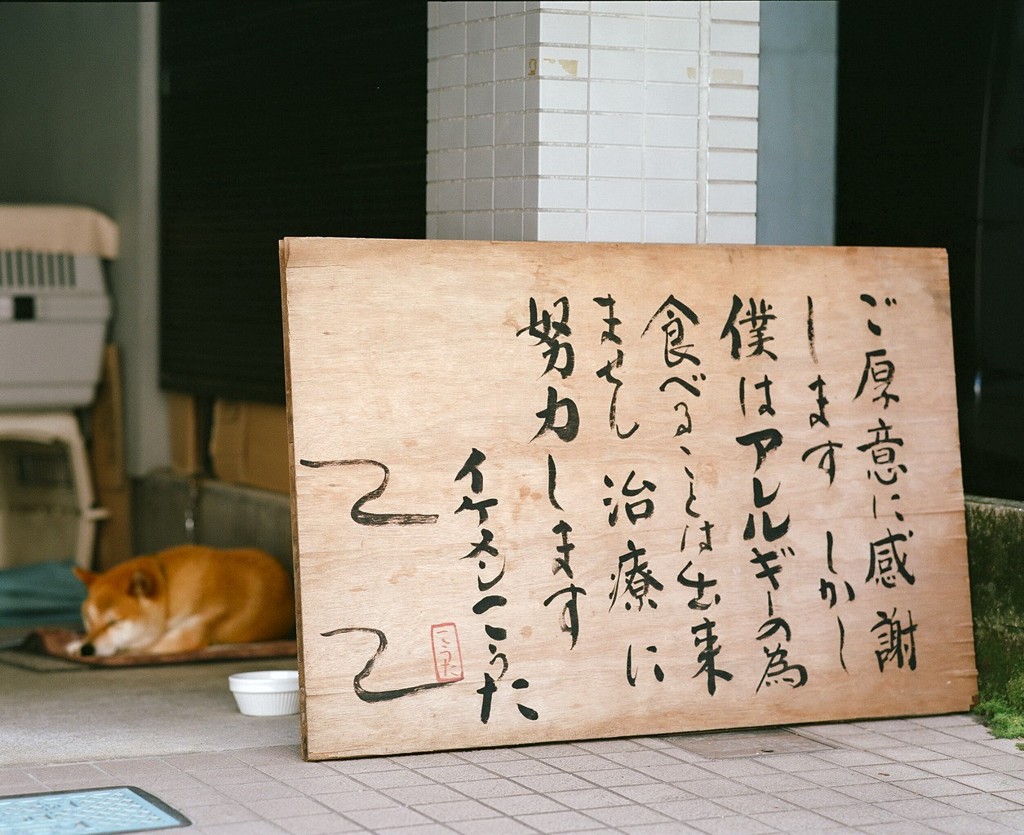 ご原意に感謝
します しかし
僕はアレルギーの為
食べることは出来
ません 治療に
努力します
イケメンこうた
こうた